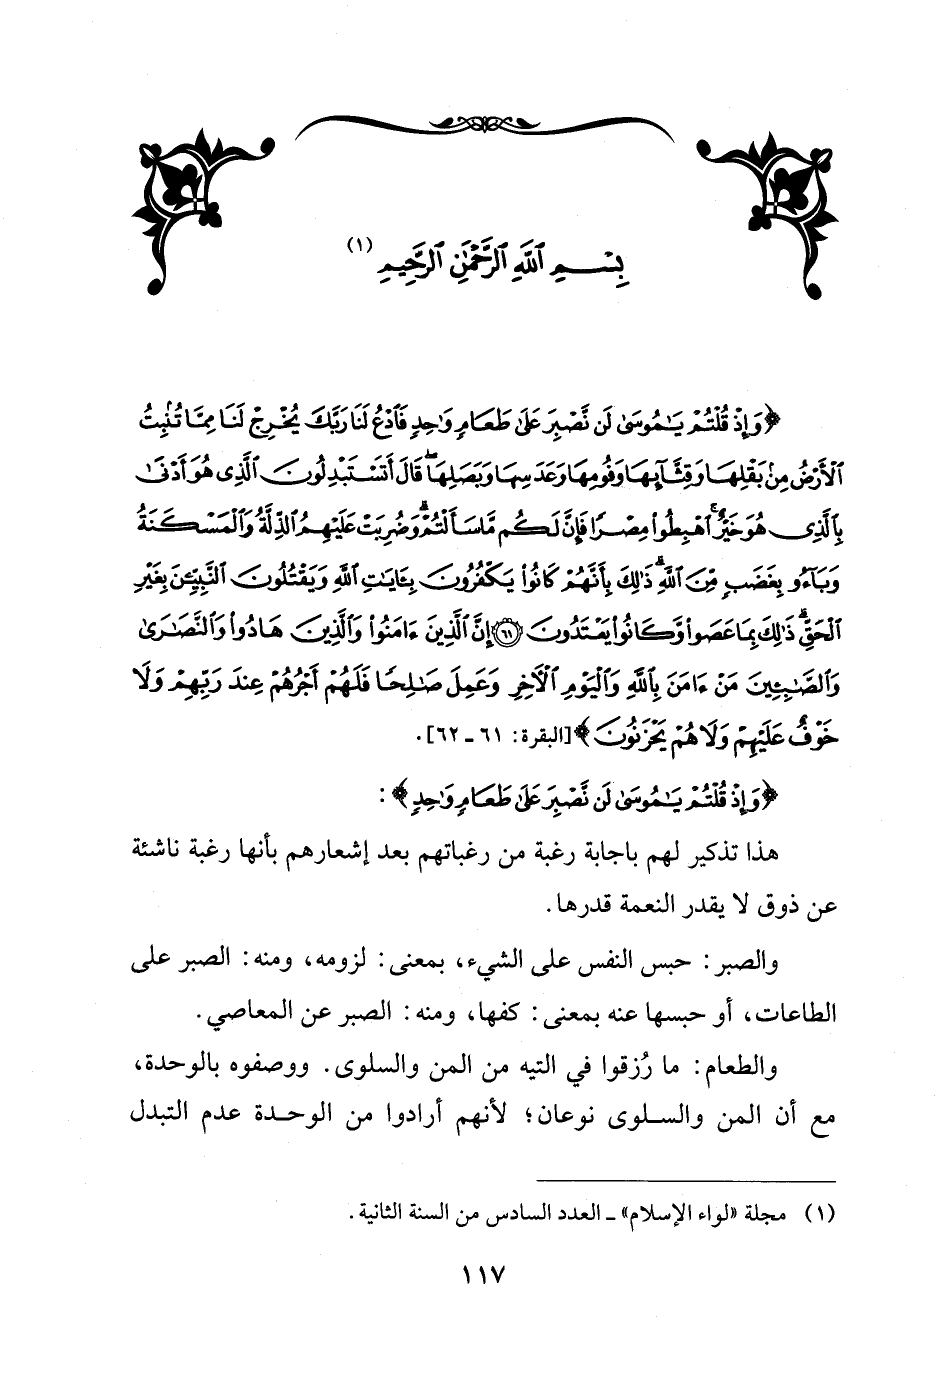 بِسْمِ ٱللَّهِ ٱلرَّحْمَٰنِ ٱلرَّحِيمِ (١)
﴿وَإِذْ قُلْتُمْ يَٰمُوسَىٰ لَن نَّصْبِرَ عَلَىٰ طَعَامٍ وَٰحِدٍ فَٱدْعُ لَنَا رَبَّكَ يُخْرِجْ لَنَا مِمَّا تُنۢبِتُ
ٱلْأَرْضُ مِنۢ بَقْلِهَا وَقِثَّآئِهَا وَفُومِهَا وَعَدَسِهَا وَبَصَلِهَا ۖ قَالَ أَتَسْتَبْدِلُونَ ٱلَّذِى هُوَ أَدْنَىٰ
بِٱلَّذِى هُوَ خَيْرٌ ۚ ٱهْبِطُوا۟ مِصْرًا فَإِنَّ لَكُم مَّا سَأَلْتُمْ ۗ وَضُرِبَتْ عَلَيْهِمُ ٱلذِّلَّةُ وَٱلْمَسْكَنَةُ
وَبَآءُو بِغَضَبٍ مِّنَ ٱللَّهِ ۗ ذَٰلِكَ بِأَنَّهُمْ كَانُوا۟ يَكْفُرُونَ بِـَٔايَٰتِ ٱللَّهِ وَيَقْتُلُونَ ٱلنَّبِيِّـۧنَ بِغَيْرِ
ٱلْحَقِّ ۗ ذَٰلِكَ بِمَا عَصَوا۟ وَّكَانُوا۟ يَعْتَدُونَ ۝٦١ إِنَّ ٱلَّذِينَ ءَامَنُوا۟ وَٱلَّذِينَ هَادُوا۟ وَٱلنَّصَٰرَىٰ
وَٱلصَّٰبِـِٔينَ مَنْ ءَامَنَ بِٱللَّهِ وَٱلْيَوْمِ ٱلْـَٔاخِرِ وَعَمِلَ صَٰلِحًا فَلَهُمْ أَجْرُهُمْ عِندَ رَبِّهِمْ وَلَا
خَوْفٌ عَلَيْهِمْ وَلَا هُمْ يَحْزَنُونَ﴾ [البقرة: ٦١ ـ ٦٢].
﴿وَإِذْ قُلْتُمْ يَٰمُوسَىٰ لَن نَّصْبِرَ عَلَىٰ طَعَامٍ وَٰحِدٍ﴾:
هذا تذكير لهم باجابة رغبة من رغباتهم بعد إشعارهم بأنها رغبة ناشئة
عن ذوق لا يقدر النعمة قدرها.
والصبر: حبس النفس على الشيء، بمعنى: لزومه، ومنه: الصبر على
الطاعات، أو حبسها عنه بمعنى: كفها، ومنه: الصبر عن المعاصي.
والطعام: ما رُزقوا في التيه من المن والسلوى. ووصفوه بالوحدة،
مع أن المن والسلوى نوعان؛ لأنهم أرادوا من الوحدة عدم التبدل
(١) مجلة «لواء الإسلام» ـ العدد السادس من السنة الثانية.
١١٧